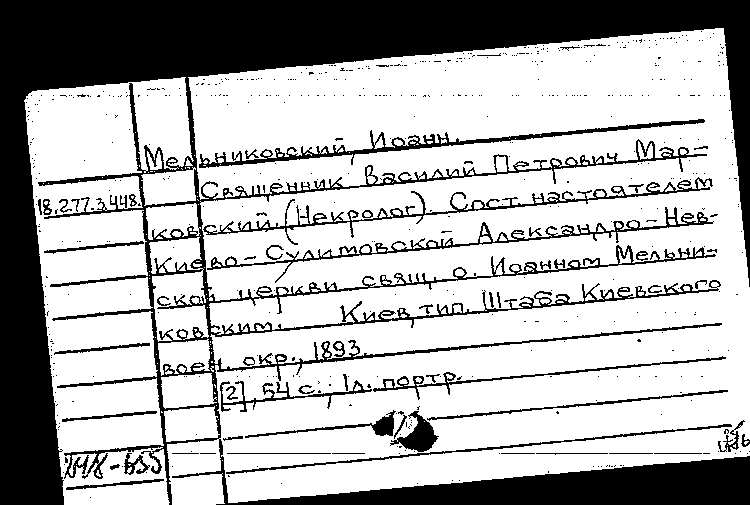 Мельниковский, Иоанн.
18.277.3.448. Священник Василий Петрович Мар-
ковский. (Некролог). Сост. настоятелем
Киево-Сулимовской Александро-Нев-
ской церкви свящ. о. Иоанном Мельни-
ковским. Киев, тип. Штаба Киевского
воен. окр., 1893.
[2], 54 с., 1 л. портр.